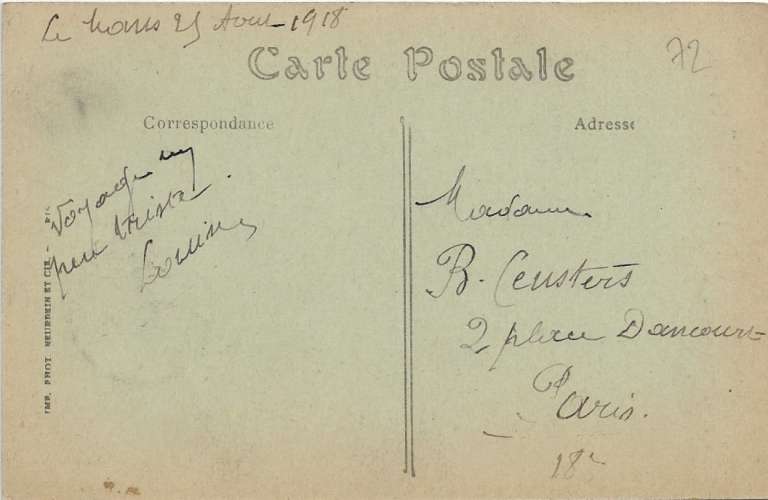 Le Mans 25 Aout 1918
72
Carte Postale
Correspondance
Adresse
Voyage un
peu triste.
Louise
Madame
B. Censters
2 place Dancourt
Paris.
18e
IMP. PHOT. NEURDEIN ET CIE. -